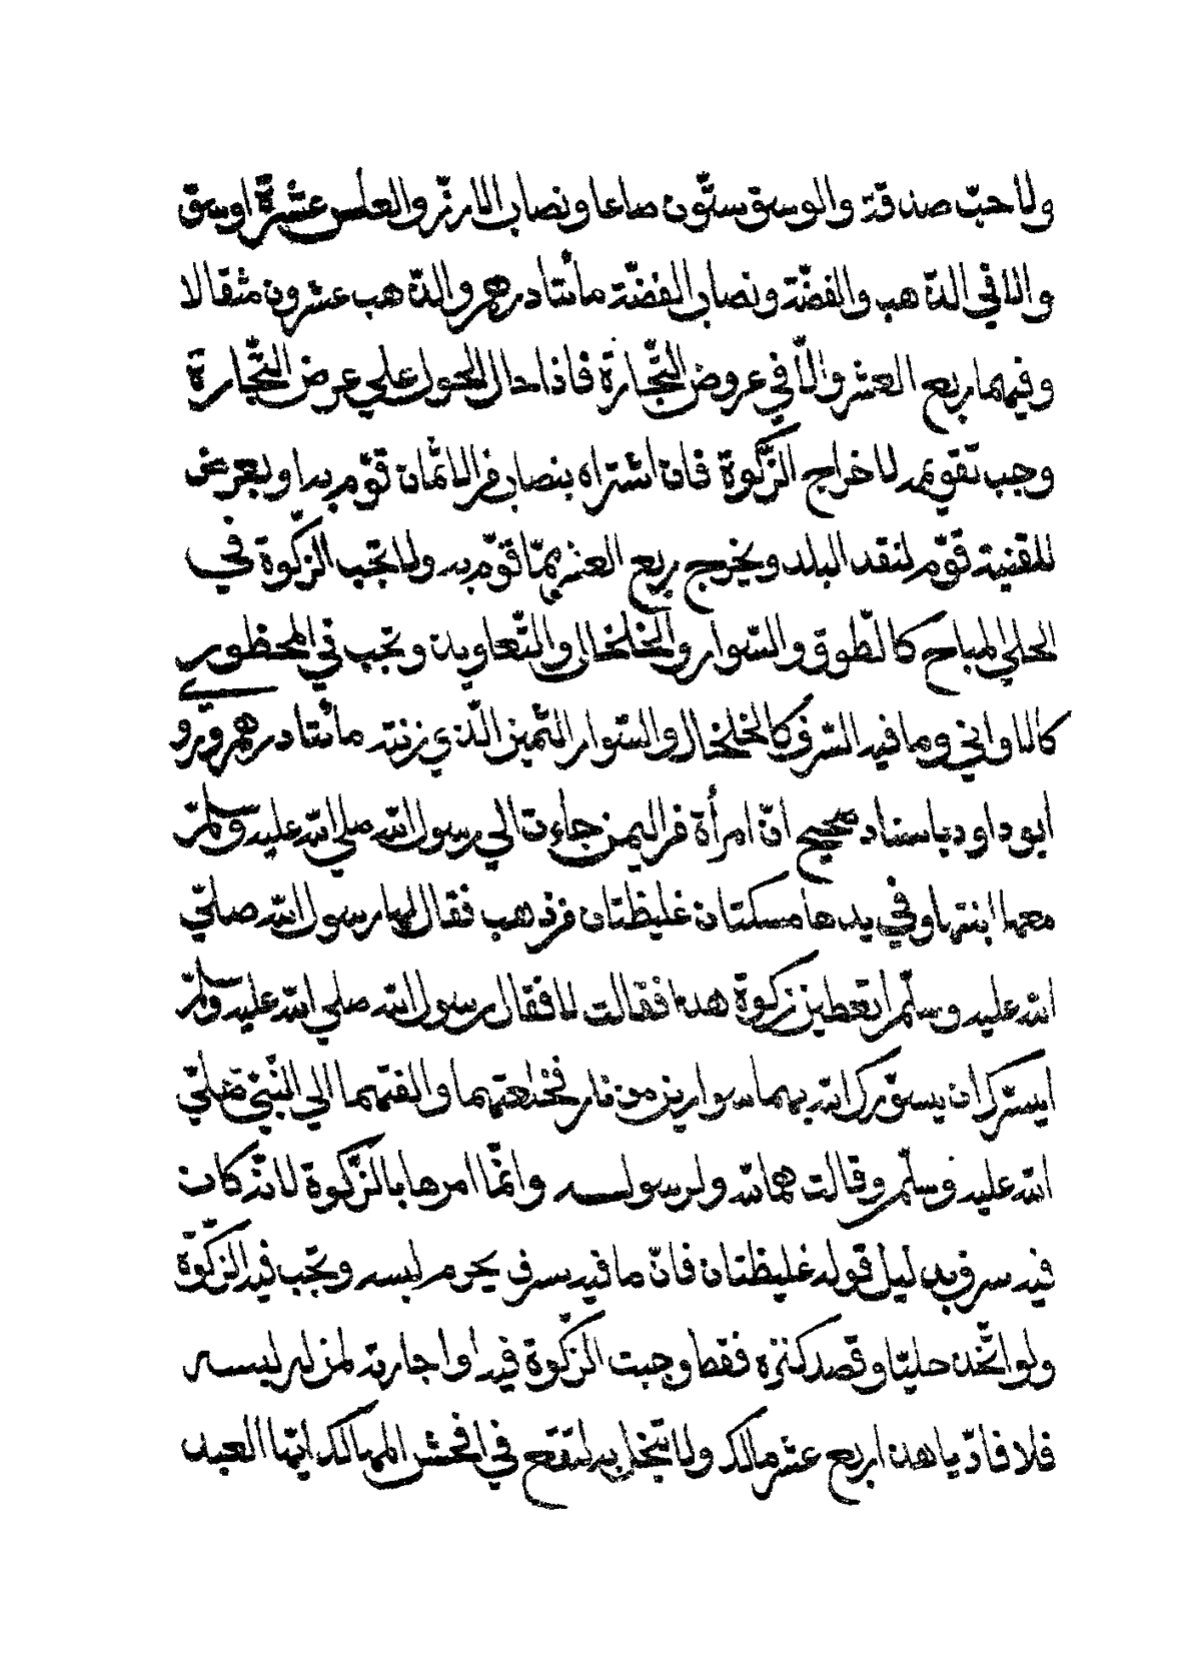 ولا حبّ صدقة والوسق ستّون صاعا ونصاب الارزّ والعلس عشرة اوسق
والا في الذّهب والفضّة ونصاب الفضّة مائتا درهم والذّهب عشرون مثقالا
وفيهما ربع العشر والّا في عروض التّجارة فاذا حال الحول علي عرض التّجارة
وجب تقويمه لاخراج الزّكوة فان اشتراه بنصاب من الاثمان قوّم به او بعرض
للقنية قوّم بنقد البلد ويخرج ربع العشر ممّا قوّم به ولا تجب الزّكوة في
الحلي المباح كالطّوق والسّوار والخلخال والتّعاويذ وتجب في المحظور
كالاواني وما فيه السّرف كالخلخال والسّوار الثّمين الّذي زنته مائتا درهم وروي
ابو داود باسناد صحيح انّ امرأة من اليمن جاءت الي رسول الله صلي الله عليه وسلّم
معها ابنتها وفي يدها مسكتان غليظتان من ذهب فقال لها رسول الله صلّي
الله عليه وسلّم اتعطين زكوة هذا فقالت لا فقال رسول الله صلي الله عليه وسلّم
ايسرّك ان يسوّرك الله بهما سوارين من نار فخلعتهما والقتهما الي النّبيّ صلّي
الله عليه وسلّم وقالت هما لله ولرسوله وانّما امرها بالزّكوة لانّه كان
فيه سرف بدليل قوله غليظتان فانّ ما فيه سرف يحرم لبسه وتجب فيه الزّكوة
ولو اتّخذ حليّا وقصد كنزه فقط وجبت الزّكوة فيه او اجارته لمن له لبسه
فلا فادّ يا هذا ربع عشر مالك ولا تبخل به لتقع في افحش المهالك ايّها العبد